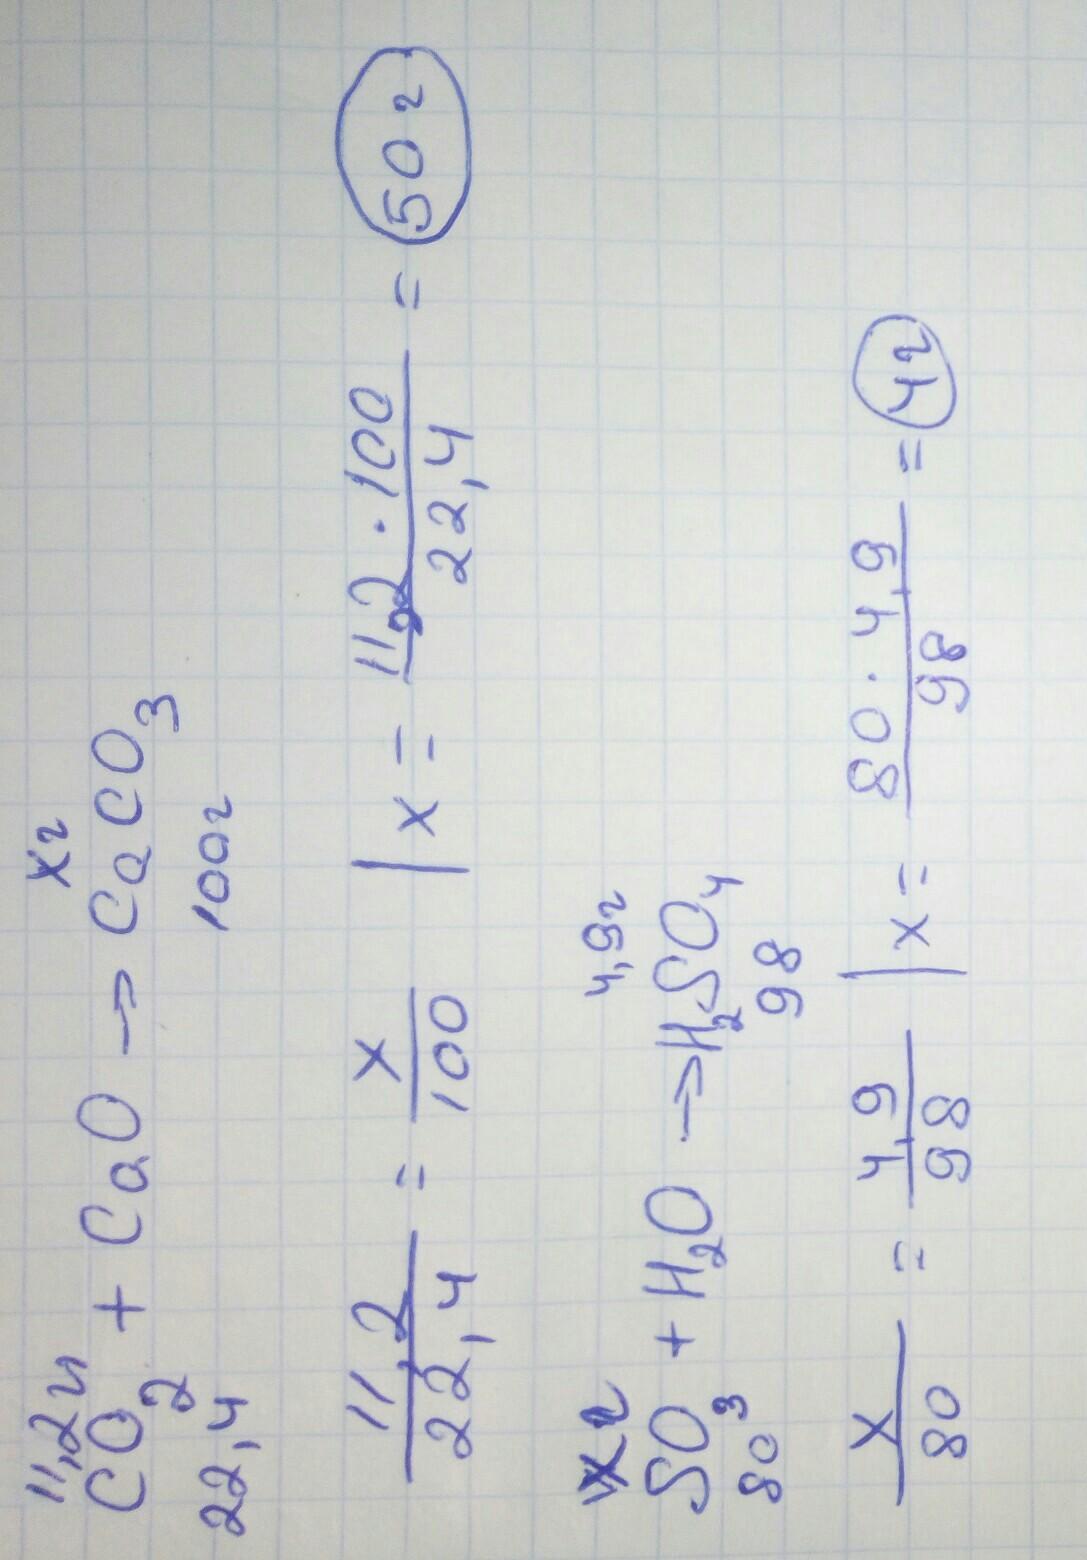 11,2л xг
CO2 + CaO → CaCO3
22,4 100г
11,2/22,4 = x/100 | x = 11,2 · 100/22,4 = 50 г
xг 4,9г
SO3 + H2O → H2SO4
80 98
x/80 = 4,9/98 | x = 80 · 4,9/98 = 4г